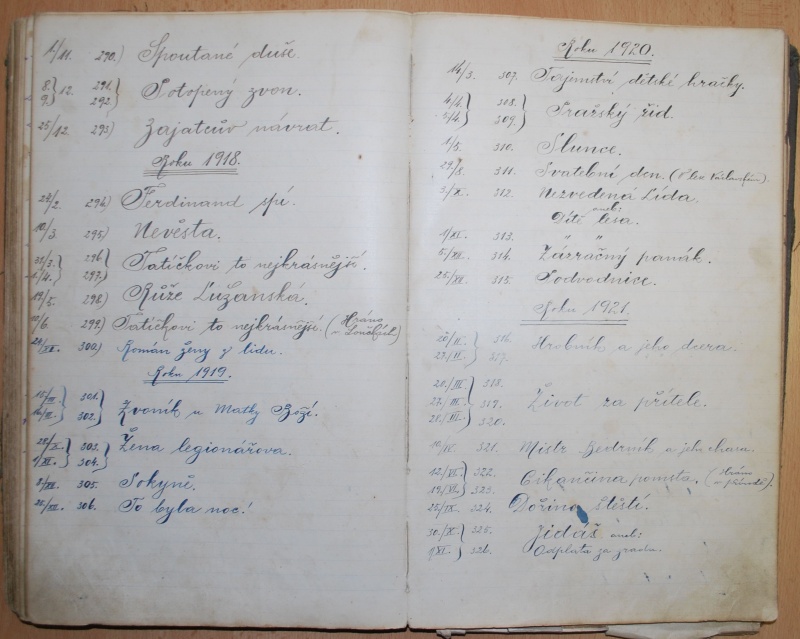 1/11. 290.) Spoutané duše.
8.} 12. 291.}
9.} 292.} Potopený zvon.
25/12. 293) Zajatcův návrat.
Roku 1918.
24/2. 294.) Ferdinand spí.
10/3. 295.) Nevěsta.
31/3.} 296.}
1./4.} 297.} Tatíčkovi to nejkrásnější.
298.) Růže Lužanská.
299.) Tatíčkovi to nejkrásnější. (Hráno
v Loučkách)
300.) Roman ženy z lidu.
Roku 1919.
301.}
302.} Zvoník u Matky Boží.
303.}
304.} Žena legionářova.
305. Sokyně.
25/XII. 306. To byla noc!
Roku 1920.
14/3. 307. Tajemství dětské hračky.
4/4.} 308.}
5/4.} 309.} Pražský žid.
1/5. 310. Slunce.
29/8. 311. Svatební den.
5/X. 312. Nezvedená Lída.
aneb:
Dítě lesa.
1/XI. 313. " "
5/XII. 314. Zázračný panák.
25/XII. 315. Podvodnice.
Roku 1921.
20/II.} 316.
27/II.} 317. Hrobník a jeho dcera.
20./III.} 318.
27./III.} 319. Život za přítele.
28./III.} 320.
10/IV. 321. Mistr Bedrník a jeho chasa.
12./VI.} 322.
19/VI.} 323. Cikánčina pomsta. (Hráno
v přírodě).
25/IX. 324. Dořina štěstí.
30./X.} 325. Jidáš aneb:
1/XI.} 326. Odplata za zradu.